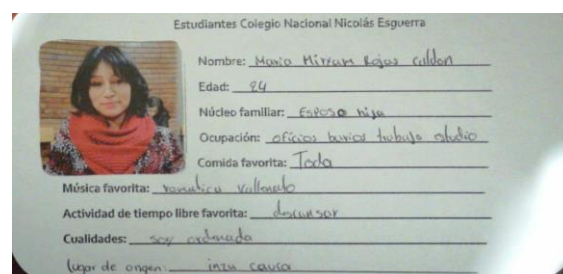 Estudiantes Colegio Nacional Nicolás Esguerra
Nombre: Maria Miriam Rojas
Edad: 24
Núcleo familiar: Esposo hija
Ocupación: oficios barios trabajo studio
Comida favorita: Toda
Música favorita: romantica Vallenato
Actividad de tiempo libre favorita: descansar
Cualidades: soy ordenada
lugar de origen: inza cauca